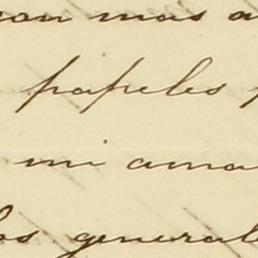 mas a
papeles
mi ama
los general